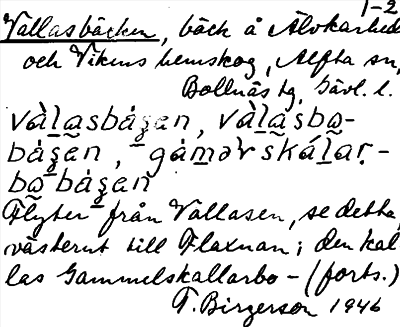 1-2
Vallasbäcken, bäck å Älvkarhed
och Vikens hemskog, Alfta sn,
Bollnäs tg, Gävl. l.
vàla̲sbág̱en, vàla̲sbo-
bág̱en, gámərskálar-
bo bág̱en
Flyter från Vallasen, se detta,
västerut till Flaxnan; den kal
las Gammelskallarbo - (forts.)
T. Birgerson 1946